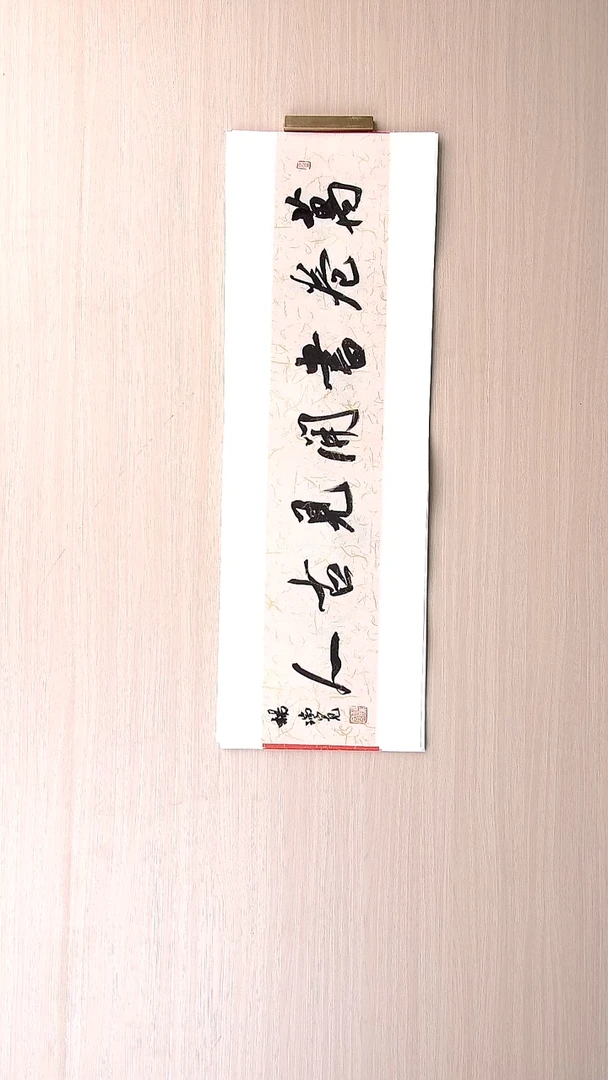 萬卷書開見古人